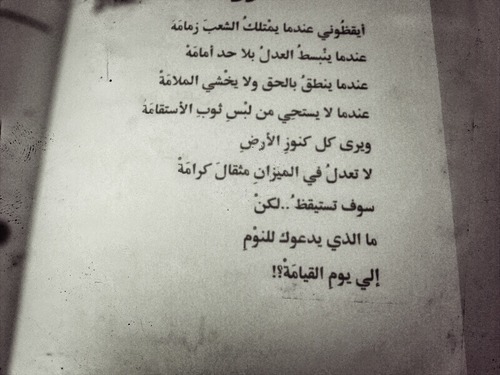 أيقظُوني عندما يمْتلكُ الشعبَ زمامَهْ
عندما ينْبسطُ العدلُ بلا حد أمامَهْ
عندما ينطقُ بالحق ولا يخْشي الملامَهْ
عندما لا يستحِي من لبْسِ ثوبِ الأستقامَهْ
ويرى كل كنوزِ الأرضِ
لا تعدلُ في الميزانِ مثقالَ كرامَهْ
سوف تستيقظُ..لكنْ
ما الذي يدعوك للنوْمِ
إلي يومِ القيامَهْ؟!